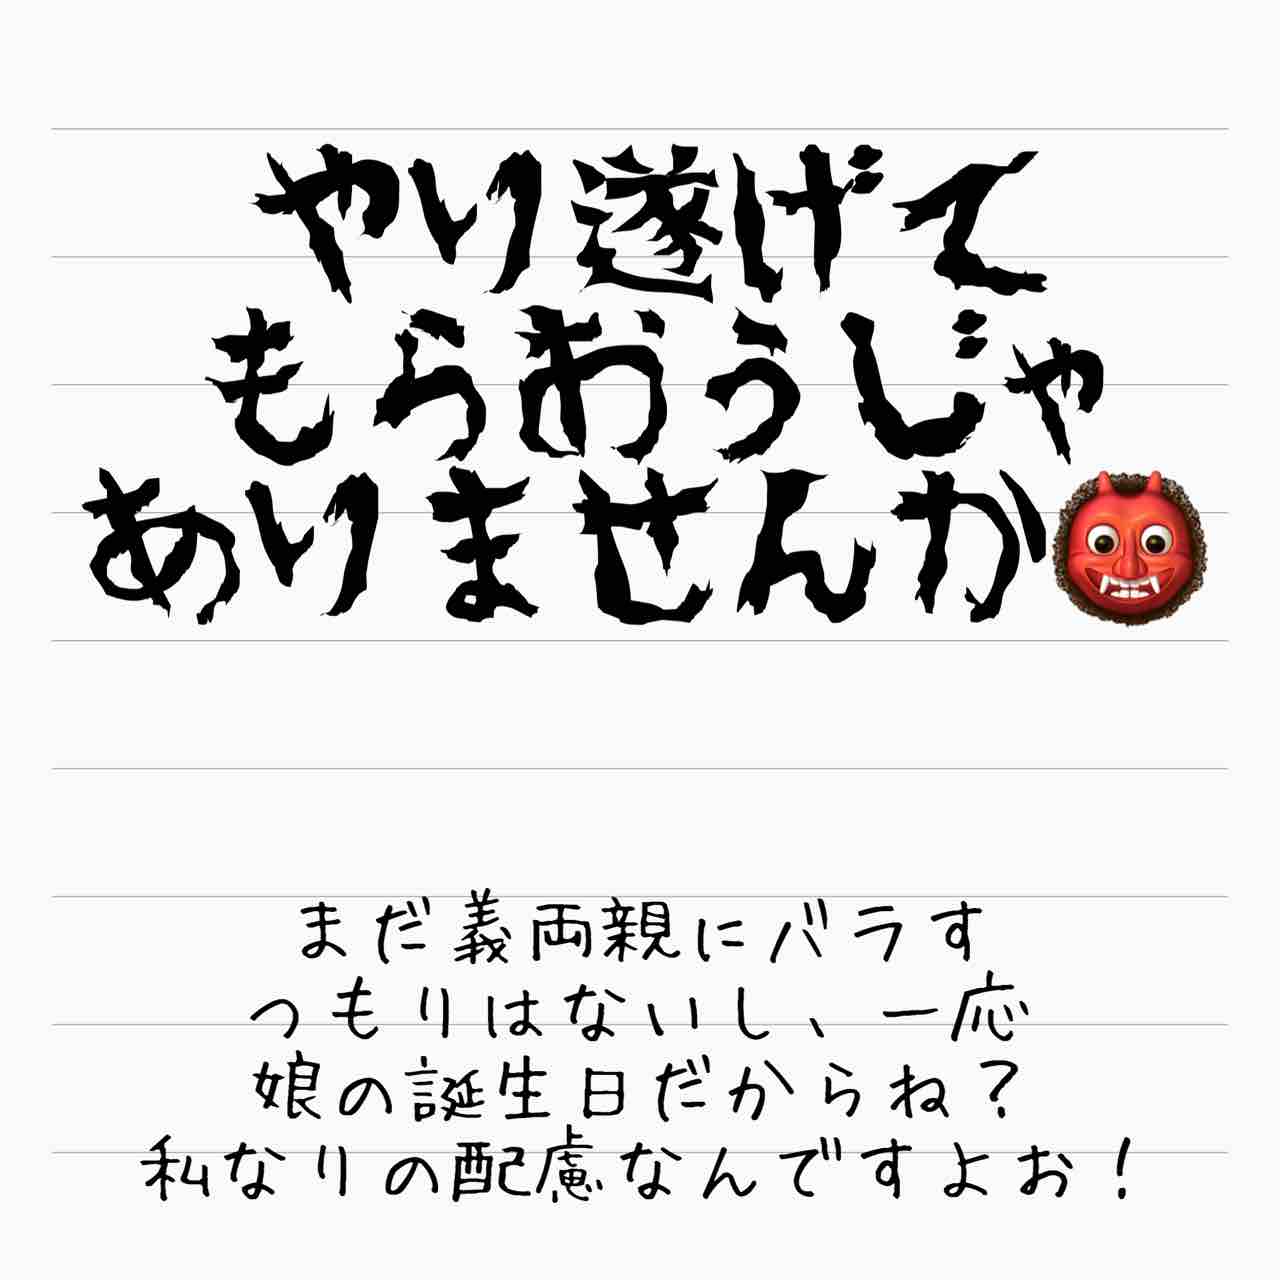 やり遂げて
もらおうじゃ
ありませんか👹
まだ義両親にバラす
つもりはないし、一応
娘の誕生日だからね？
私なりの配慮なんですよお！